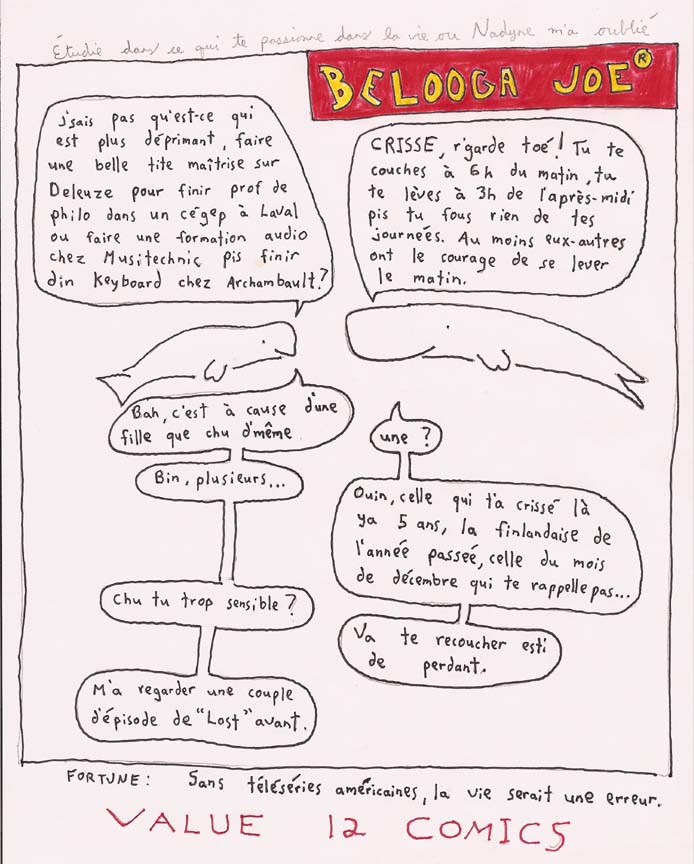 Étudie dans ce qui te passionne dans la vie ou Nadyne m'a oublié
BELOOGA JOE®
J'sais pas qu'est-ce qui
est plus déprimant, faire
une belle tite maîtrise sur
Deleuze pour finir prof de
philo dans un cégep à Laval
ou faire une formation audio
chez Musitechnic pis finir
din Keyboard chez Archambault?
CRISSE, r'garde toé! Tu te
couches à 6h du matin, tu
te lèves à 3h de l'après-midi
pis tu fous rien de tes
journées. Au moins eux-autres
ont le courage de se lever
le matin.
Bah, c'est à cause d'une
fille que chu d'même.
Bin, plusieurs...
une ?
Ouin, celle qui t'a crissé là
ya 5 ans, la finlandaise de
l'année passeé, celle du mois
de décembre qui te rappelle pas...
Chu tu trop sensible ?
Va te recoucher esti
de perdant.
M'a regarder une couple
d'épisode de "Lost" avant.
FORTUNE: Sans téléséries américaines, la vie serait une erreur.
VALUE 12 COMICS